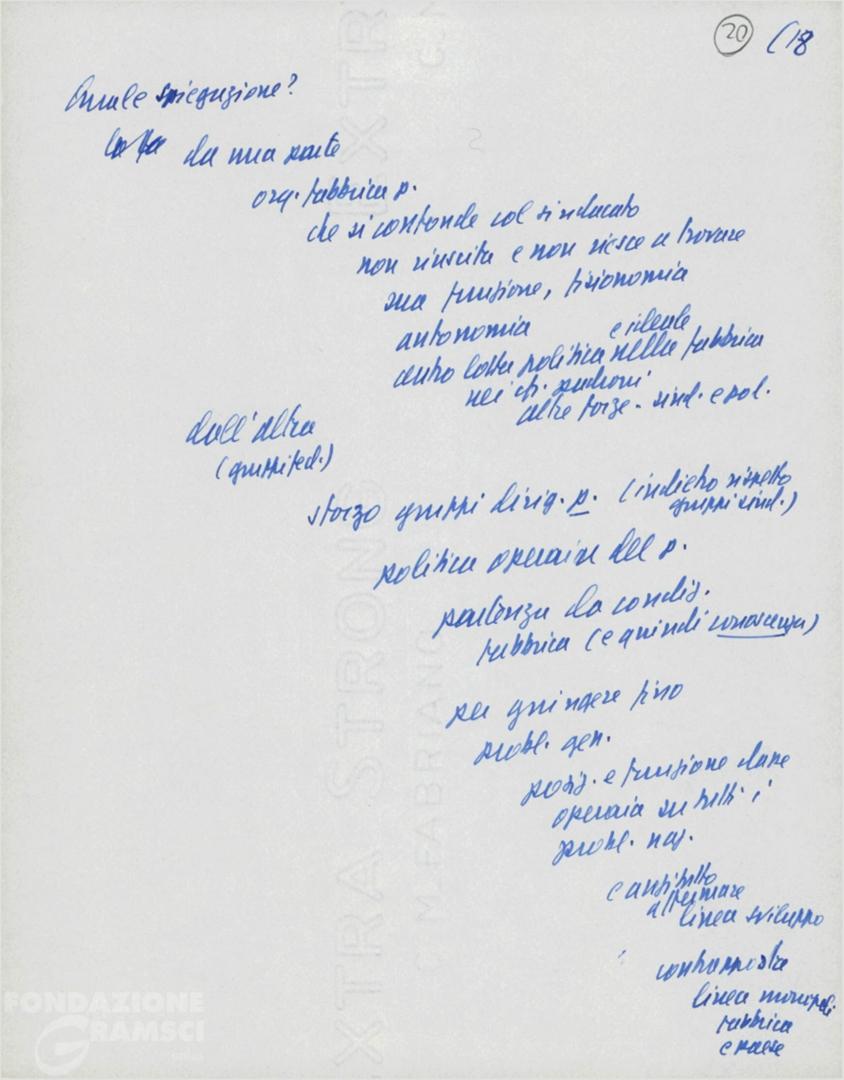 20 (18
Quale spiegazione?
da una parte
org. fabbrica p.
che si confonde col sindacato
non riuscita e non riesce a trovare
sua funzione, fisionomia
autonomia
e ideale
dentro lotta politica nella fabbrica
nei cfr. padroni
altre forze - sind. e pol.
dall'altra
(gruppi fed.)
sforzo gruppi dirig. p. (indietro rispetto
gruppi sind.)
politica operaia del p.
partenza da condiz.
fabbrica (e quindi conoscenza)
per giungere fino
probl. gen.
posiz. e funzione classe
operaia su tutti i
probl. naz.
e anzitutto
affermare
linea sviluppo
contrapposta
linea monopoli
fabbrica
e paese
EXTRA STRONG
M. FABRIANO
FONDAZIONE
GRAMSCI